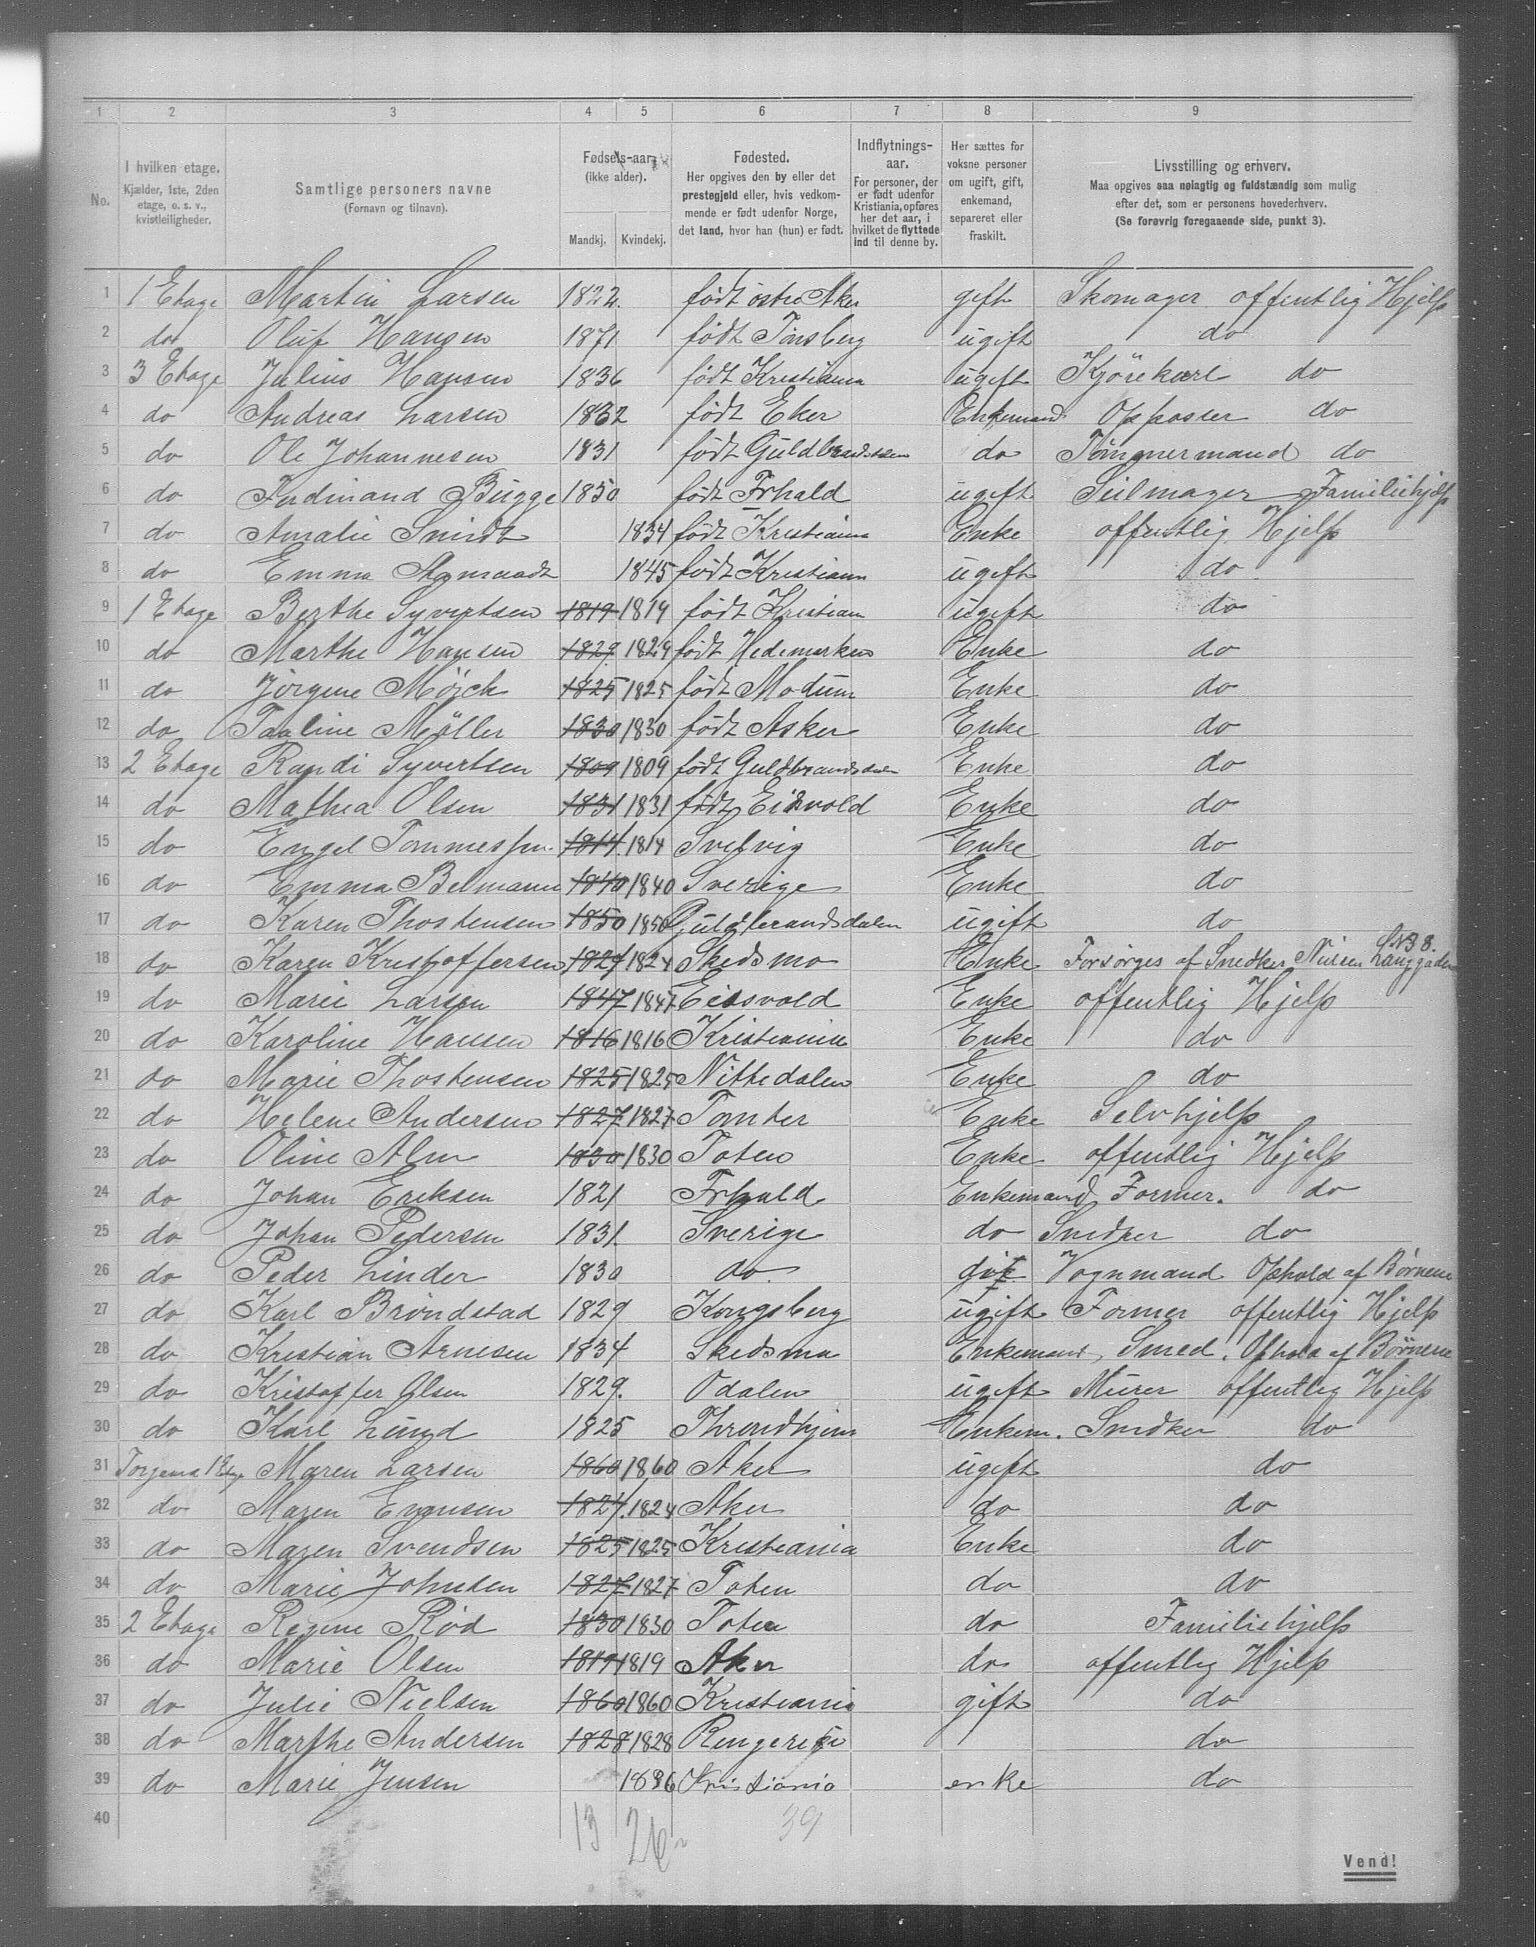 1 2 3 4 5 6 7 8 9
No. I hvilken etage. Kjælder, 1ste, 2den etage, o. s. v., kvistleiligheder. Samtlige personers navne (Fornavn og tilnavn). Fødsels-aar. (ikke alder). Mandkj. Kvindekj. Fødested. Her opgives den by eller det prestegjeld eller, hvis vedkommende er født udenfor Norge, det land, hvor han (hun) er født. Indflytnings-aar. For personer, der er født udenfor Kristiania, opføres her det aar, i hvilket de flyttede ind til denne by. Her sættes for voksne personer om ugift, gift, enkemand, separeret eller fraskilt. Livsstilling og erhverv. Maa opgives saa nøiagtig og fuldstændig som mulig efter det, som er personens hovederhverv. (Se forøvrig foregaaende side, punkt 3).
1 1 Etage Martin Larsen 1822. født østre Aker gift Skomager offentlig Hjelp
2 do Oluf Hansen 1871 født Tønsberg ugift do
3 3 Etage Julius Hansen 1836 født Kristiania ugift Kjörekarl do
4 do Andreas Larsen 1832 født Eker Enkemand Oppasser do
5 do Ole Johannesen 1831 født Guldbrandsdalen do Tømmermand do
6 do Ferdinand Bugge 1850 født Frhald ugift Seilmager Familiehjelp
7 do Amalie Smidt 1834 født Kristiania Enke offentlig Hjelp
8 do Emma 1845 født Kristiania ugift do
9 1 Etage Berthe Syvertsen 1819 1819 født Kristiania ugift do
10 do Marthe Hansen 1829 1829 født Hedemarken Enke do
11 do Jørgine Mörch 1825 1825 født Modum Enke do
12 do Pauline Møller 1830 1830 født Asker Enke do
13 2 Etage Randi Syvertsen 1809 1809 født Guldbrandsdalen Enke do
14 do Mathea Olsen 1831 1831 født Eidsvold Enke do
15 do Engel Tommessen 1814. 1814 Svelvig Enke do
16 do Emma Belmann 1840 1840 Sverige Enke do
17 do Karen Thostensen 1850 1850 Guldbrandsdalen ugift do
18 do Karen Kristoffersen 1824 1824 Skedsmo Enke Forsørges af Snedker Nilsen Langgaden No 8.
19 do Marie Larsen 1847 1847 Eidsvold Enke offentlig Hjelp
20 do Karoline Hansen 1816 1816 Kristiania Enke do
21 do Marie Thostensen 1825 1825 Nittedalen Enke do
22 do Helene Andersen 1827 1827 Tomter Enke Selvhjelp
23 do Oline Alm 1830 1830 Toten Enke offentlig Hjelp
24 do Johan Eriksen 1821 Frhald Enkemand Former. do
25 do Johan Pedersen 1831. Sverige do Snedker do
26 do Peder Linder 1830 do gift Vognmand Ophold af Børnene
27 do Karl Brøndstad 1829 Kongsberg ugift Former offentlig Hjelp
28 do Kristian Arnesen 1834 Skedsmo Enkemand, Smed. Ophold af Börnene
29 do Kristoffer Olsen 1829. Odalen ugift Murer offentlig Hjelp
30 do Karl Lund 1825 Throndhjem Enkem. Snedker do
31 1 Etage Maren Larsen 1860 1860 Aker ugift do
32 do Maren Evensen 1824. 1824 Aker do do
33 do Maren Svendsen 1825 1825 Kristiania Enke do
34 do Marie Johnsen 1827 1827 Toten do do
35 2 Etage Regine Röd 1830 1830 Toten do Familiehjelp
36 do Marie Olsen 1819 1819 Aker do offentlig Hjelp
37 do Julie Nielsen 1860 1860 Kristiania gift do
38 do Marthe Andersen 1828 1828 Ringerige do
39 do Marie Jensen 1836 Kristiania enke do
40 13 26 39
Vend!